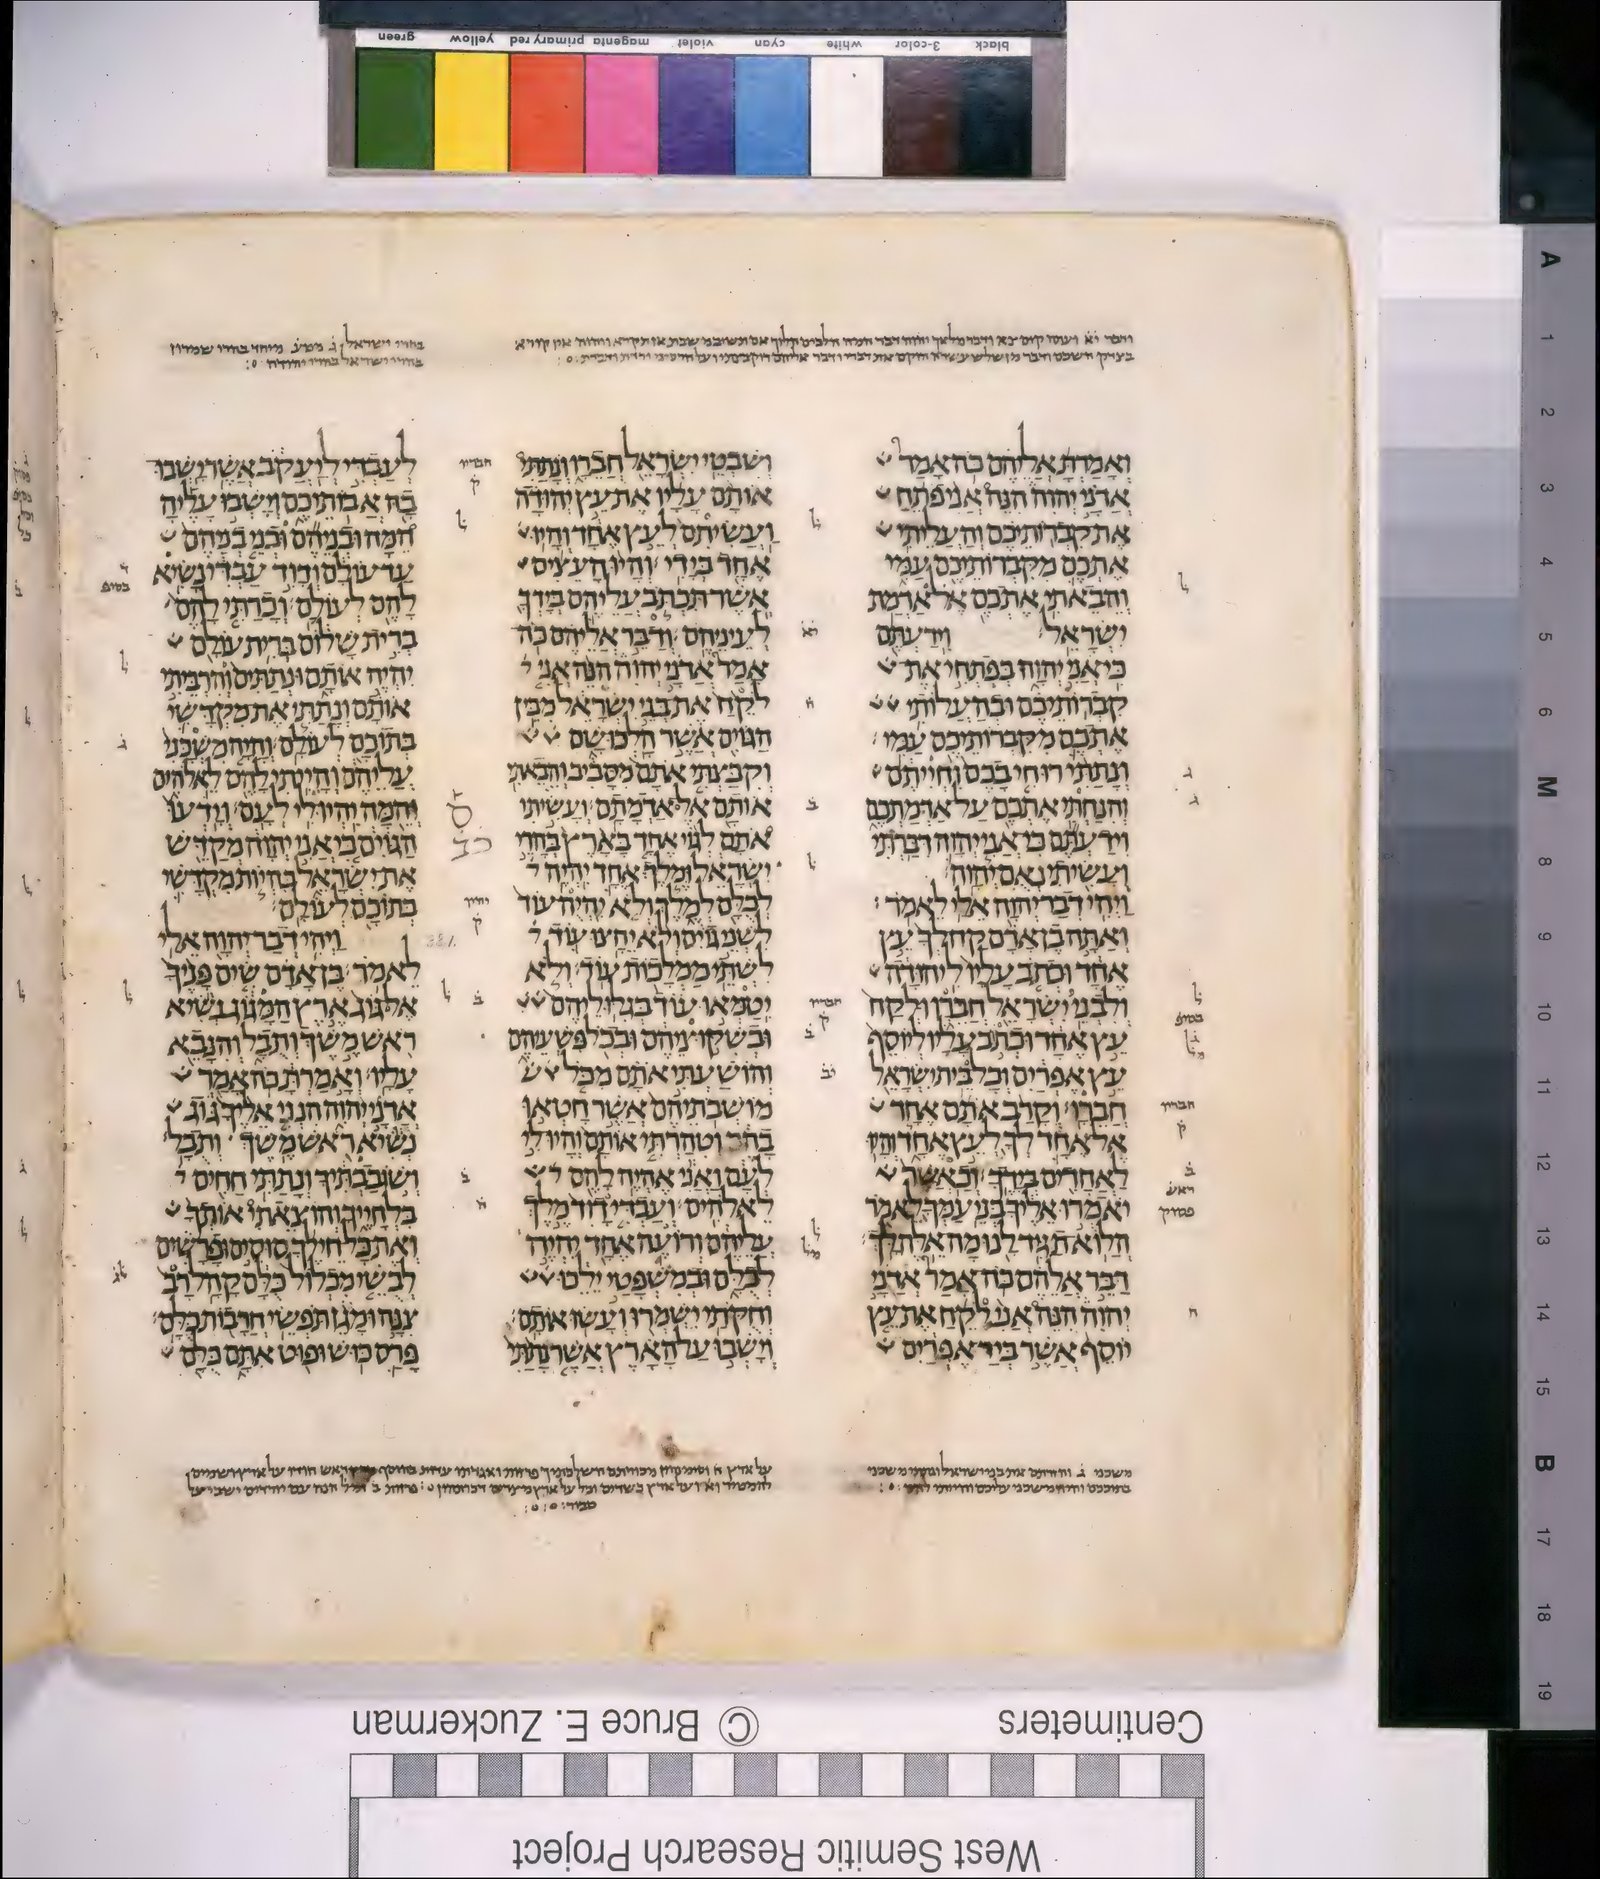 green yellow primary red magenta violet cyan white 3-color black
ואמרת אליהם כה אמר
אדני יהוה הנה אני פתח
את קברותיכם והעליתי
אתכם מקברותיכם עמי
והבאתי אתכם אל אדמת
ישראל וידעתם
כי אני יהוה בפתחי את
קברותיכם ובהעלותי
אתכם מקברותיכם עמי
ונתתי רוחי בכם וחייתם
והנחתי אתכם על אדמתכם
וידעתם כי אני יהוה דברתי
ועשיתי נאם יהוה
ויהי דבר יהוה אלי לאמר
ואתה בן אדם קח לך עץ
אחד וכתב עליו ליהודה
ולבני ישראל חברו ולקח
עץ אחד וכתב עליו ליוסף
עץ אפרים וכל בית ישראל
חברו וקרב אתם אחד
אל אחד לך לעץ אחד והיו
לאחדים בידך וכאשר
יאמרו אליך בני עמך לאמר
הלוא תגיד לנו מה אלה לך
דבר אלהם כה אמר אדני
יהוה הנה אני לקח את עץ
יוסף אשר ביד אפרים
ושבטי ישראל חברו ונתתי
אותם עליו את עץ יהודה
ועשיתם לעץ אחד והיו
אחד בידי והיו העצים
אשר תכתב עליהם בידך
לעיניהם ודבר אליהם כה
אמר אדני יהוה הנה אני
לקח את בני ישראל מבין
הגוים אשר הלכו שם
וקבצתי אתם מסביב והבאתי
אותם אל אדמתם ועשיתי
אתם לגוי אחד בארץ בהרי
ישראל ומלך אחד יהיה
לכלם למלך ולא יהיה עוד
לשני גוים ולא יחצו עוד
לשתי ממלכות עוד ולא
יטמאו עוד בגלוליהם
ובשקוציהם ובכל פשעיהם
והושעתי אתם מכל
מושבתיהם אשר חטאו
בהם וטהרתי אותם והיו לי
לעם ואני אהיה להם
לאלהים ועבדי דוד מלך
עליהם ורועה אחד יהיה
לכלם ובמשפטי ילכו
וחקתי ישמרו ועשו אותם
וישבו על הארץ אשר נתתי
לעבדי ליעקב אשר ישבו
בה אבותיכם וישבו עליה
המה ובניהם ובני בניהם
עד עולם ודוד עבדי נשיא
להם לעולם וכרתי להם
ברית שלום ברית עולם
יהיה אותם ונתתים והרביתי
אותם ונתתי את מקדשי
בתוכם לעולם והיה משכני
עליהם והייתי להם לאלהים
והמה יהיו לי לעם וידעו
הגוים כי אני יהוה מקדש
את ישראל בהיות מקדשי
בתוכם לעולם
ויהי דבר יהוה אלי
לאמר בן אדם שים פניך
אל גוג ארץ המגוג נשיא
ראש משך ותבל והנבא
עליו ואמרת כה אמר
אדני יהוה הנני אליך גוג
נשיא ראש משך ותבל
ושובבתיך ונתתי חחים
בלחייך והוצאתי אותך
ואת כל חילך סוסים ופרשים
לבשי מכלול כלם קהל רב
צנה ומגן תפשי חרבות כלם
פרס כוש ופוט אתם כלם
Centimeters
© Bruce E. Zuckerman
West Semitic Research Project
A 1 2 3 4 5 6 M 8 9 10 11 12 13 14 15 B 17 18 19